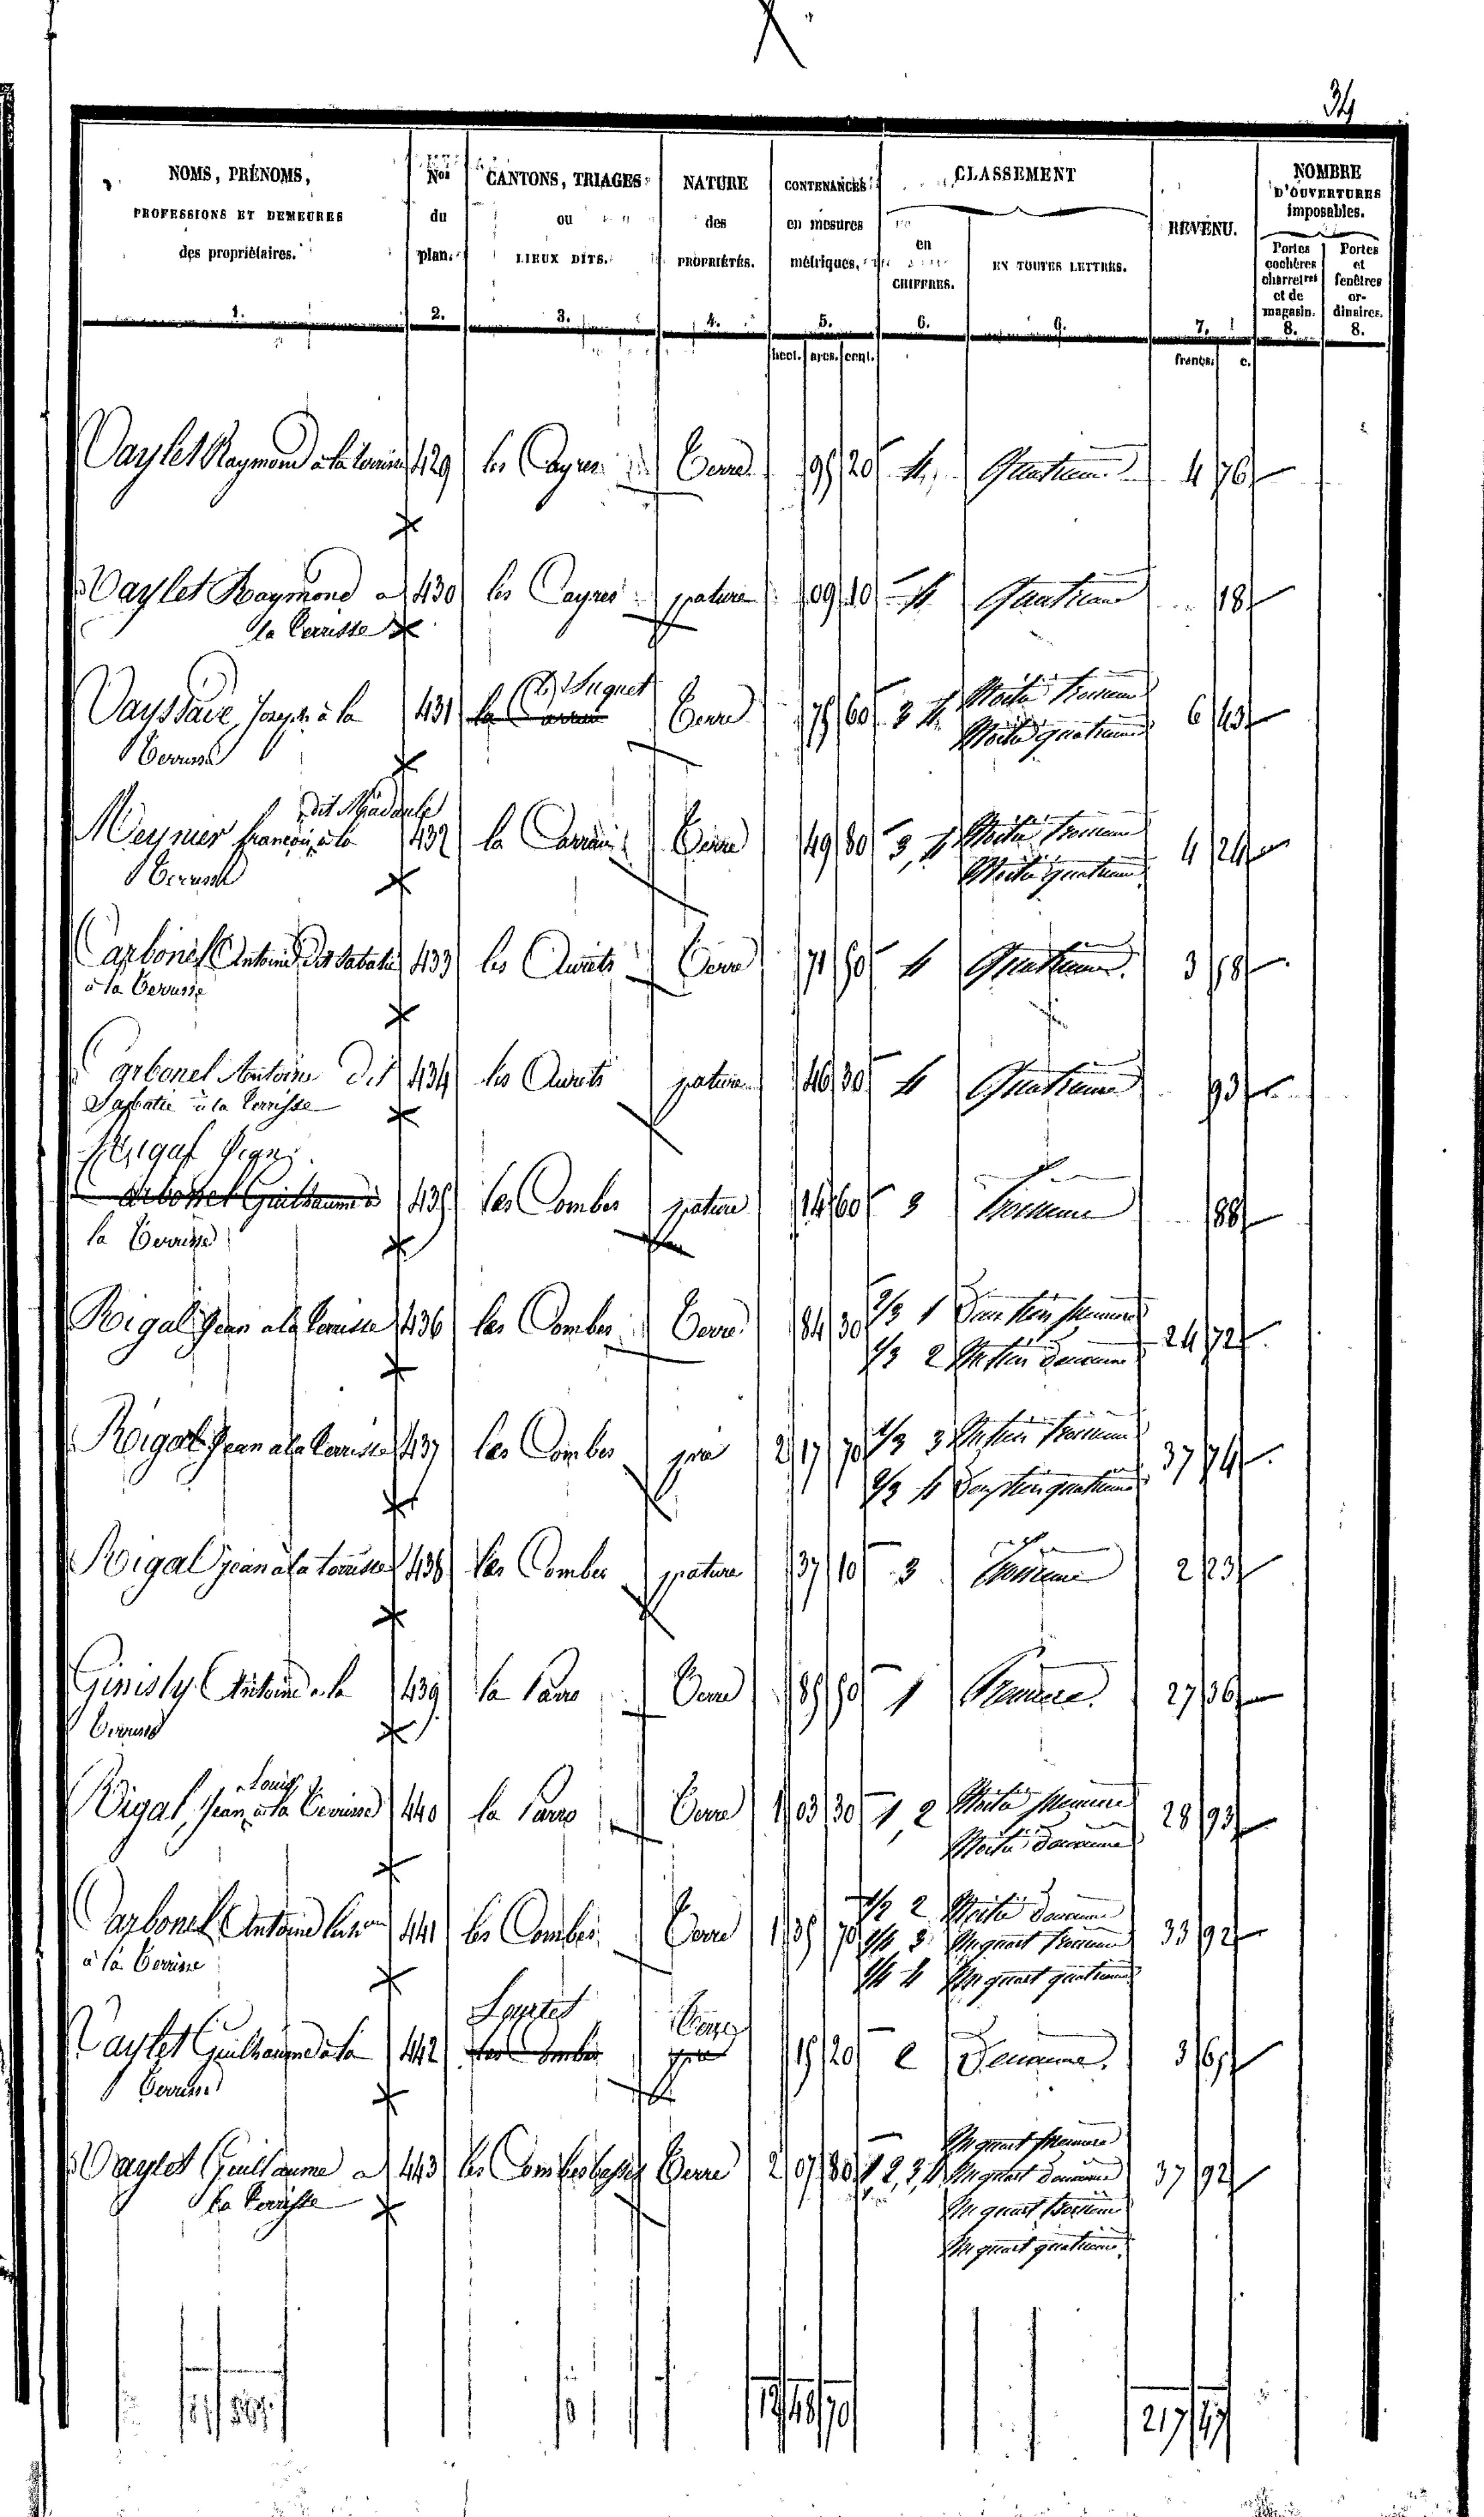 34
NOMS, PRÉNOMS, PROFESSIONS ET DEMEURES des propriétaires. 1.
Nos du plan. 2.
CANTONS, TRIAGES ou LIEUX DITS. 3.
NATURE des PROPRIÉTÉS. 4.
CONTENANCES en mesures métriques. 5.
CLASSEMENT
en CHIFFRES. 6.
EN TOUTES LETTRES. 6.
REVENU. 7.
NOMBRE D'OUVERTURES imposables.
Portes cochères charretres et de magasin. 8.
Portes et fenêtres ordinaires. 8.
hect. ares. cent. francs. c.
Vaylet Raymond a la Terrisse 429 les Cayres Terre 95 20 4 Quatrieme 4 76
Vaylet Raymond a 430 les Cayres pature 09 10 4 Quatrieme 18
la Terrisse
le Suguet
Vayssade Joseph à la 431 la Carrau Terre 75 60 3 4 Moitié troisieme 6 43
Terrisse Moitié quatrieme
dit
Meynier francois a la 432 la Terre 49 80 3, 4 Moitié troisieme 4 24
Terrisse Moitié quatrieme
Carbonel Antoine Dit Sabatié 433 les Terre 71 50 4 Quatrieme 3 58
à la Terrisse
Carbonel Antoine Dit 434 les pature 46 30 4 Quatrieme 93
Sabatié à la Terrisse
Rigal
Carbonel Guilhaume à 435 les Combes pature 14 60 3 Troisieme 88
la Terrisse
Rigal Jean a la Terrisse 436 les Combes Terre 84 30 2/3 1 Deux tiers premiere 24 72
1/3 2 Un tiers deuxieme
Rigal Jean a la Terrisse 437 les Combes pré 2 17 70 1/3 3 Un tiers troisieme 37 74
2/3 4 Deux tiers quatrieme
Rigal jean a la terrisse 438 les Combes pature 37 10 3 Troisieme 2 23
Ginisty Antoine a la 439 la Parro Terre 85 50 1 Premiere. 27 36
Terrisse
Louis
Rigal, Jean, a la Terrisse 440 la Parro Terre 1 03 30 1, 2 Moitié premiere 28 93
Moitié Deuxieme
Carbonel Antoine 441 les Combes Terre 1 35 70 1/2 2 Moitié Deuxieme 33 92
à la Terrisse 1/4 3 Un quart troisieme
1/4 4 Un quart quatrieme
Terre
Vaylet Guilhaume a la 442 les Combes pré 15 20 2 Deuxieme. 3 65
Terrisse
Vaylet Guillaume a 443 les Combes basses Terre 2 07 80 1, 2, 3, 4 Un quart premiere 37 92
la Terrisse Un quart Deuxieme
Un quart troisieme
Un quart quatrieme
217 47